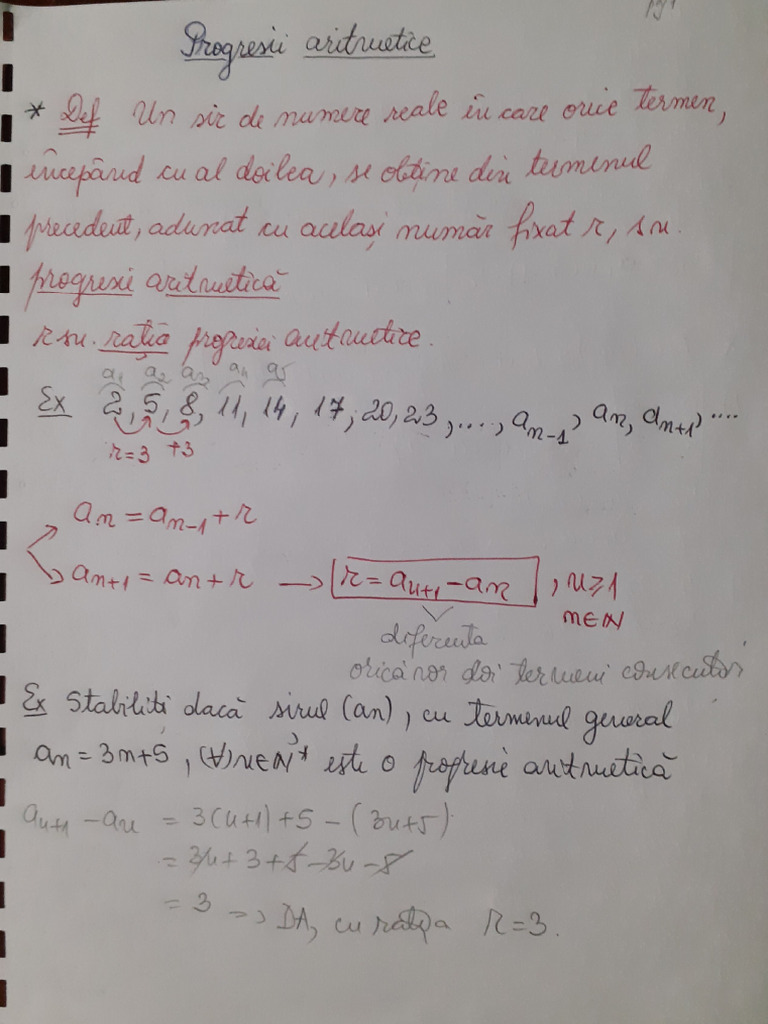 pg 1
Progresii aritmetice
* Def Un șir de numere reale în care orice termen,
începând cu al doilea, se obține din termenul
precedent, adunat cu același număr fixat r, s.n.
progresie aritmetică
r s.n. rația progresiei aritmetice.
a1 a2 a3 a4 a5
Ex 2, 5, 8, 11, 14, 17, 20, 23, ...., an-1, an, an+1, ....
r=3 +3
an = an-1 + r
an+1 = an + r → r = an+1 - an , n≥1
n∈N
diferența
oricăror doi termeni consecutivi
Ex Stabiliti dacă șirul (an), cu termenul general
an = 3n+5, (∀)n∈N* este o progresie aritmetică
an+1 - an = 3(n+1)+5 - (3n+5)
= 3n + 3 + 5 - 3n - 5
= 3 => DA, cu rația r=3.